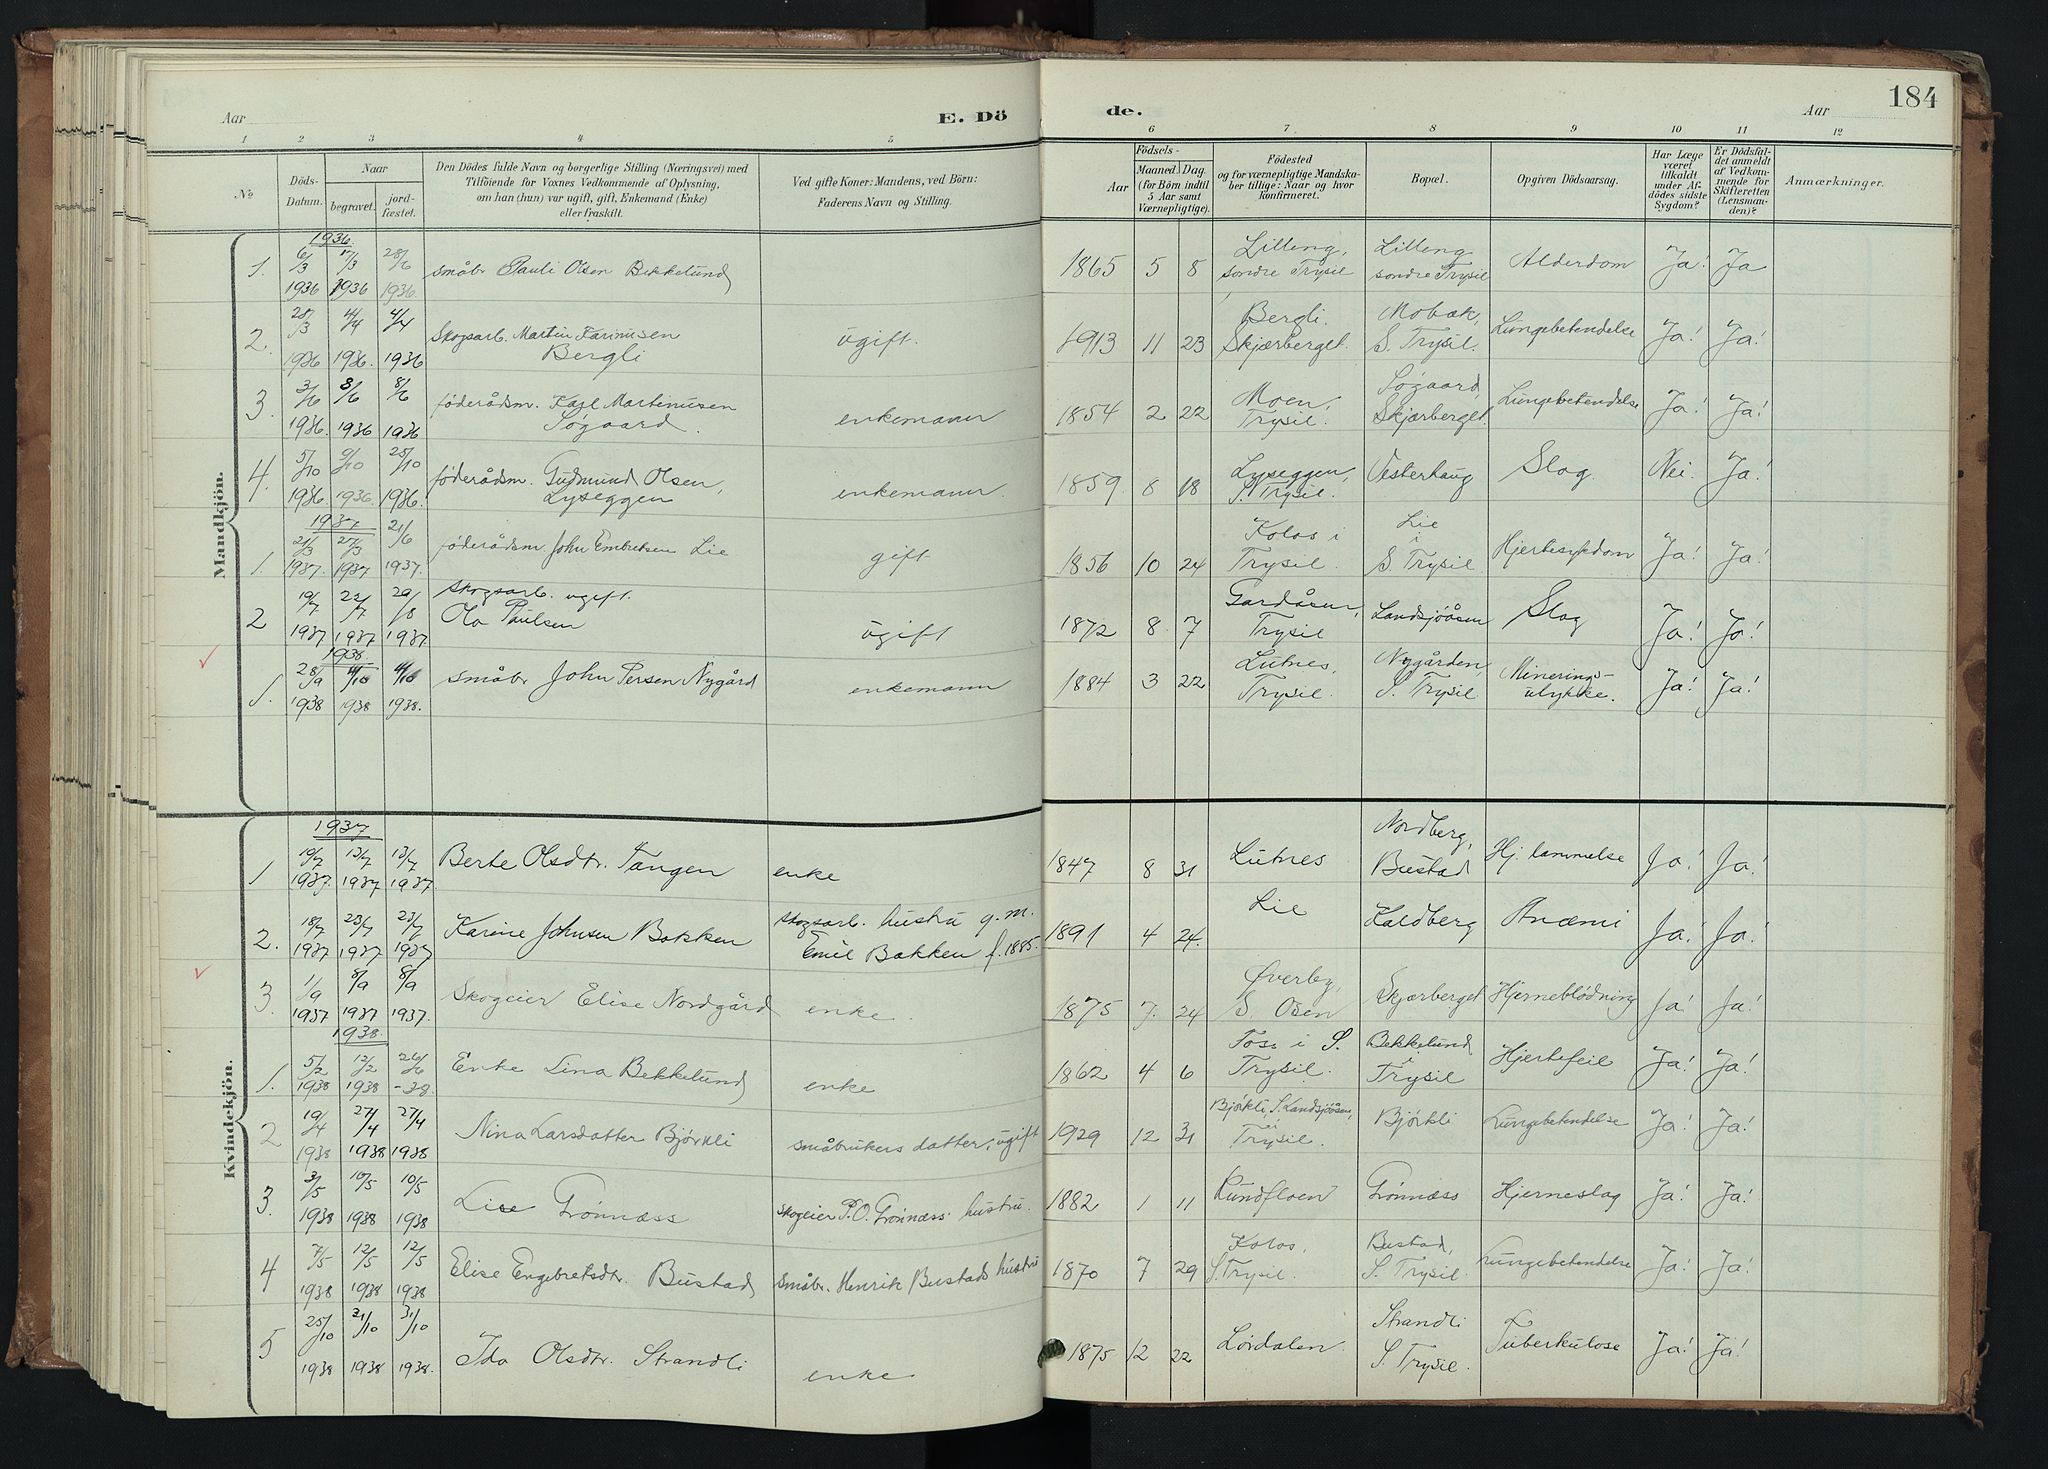 Aar
E. Dö
de.
Aar
184
1 2 3 4 5 6 7 8 9 10 11 12
No
Döds-Datum.
Naar
begravet.
jord-fæstet.
Den Dödes fulde Navn og borgerlige Stilling (Næringsvei) med
Tilföiende for Voxnes Vedkommende af Oplysning,
om han (hun) var ugift, gift, Enkemand (Enke)
eller fraskilt.
Ved gifte Koner: Mandens, ved Börn:
Faderens Navn og Stilling.
Födsels-
Aar
Maaned.
Dag.
(for Börn indtil
5 Aar samt
Værnepligtige).
Födested
og for værnepligtige Mandska-
ber tillige: Naar og hvor
konfirmeret.
Bopæl.
Opgiven Dödsaarsag.
Har Læge
været
tilkaldt
under Af-
dödes sidste
Sygdom?
Er Dödsfal-
det anmeldt
af Vedkom-
mende for
Skifteretten
(Lensman-
den)?
Anmærkninger.
Mandkjön.
1936
1. 6/3 1936 17/3 1936 28/6 1936 småbr Pauli Olsen Bekkelund 1865 5 8 Lilleng, søndre Trysil Lilleng søndre Trysil Alderdom Ja! Ja
2. 28/3 1936 4/4 1936. 4/4 1936 Skogsarb. Martin Karinusen Bergli ugift. 1913 11 23 Bergli. Skjærberget. Mobæk, S. Trysil. Lungebetendelse Ja! Ja!
3. 3/6 1936. 8/6 1936 8/6 1936 føderådsm. Karl Martinusen Søgaard. enkemann 1854 2 22 Moen, Trysil. Søgaard, Skjærberget. Lungebetendelse Ja! Ja!
4. 5/10 1936 9/10 1936. 25/10 1936. føderådsm. Gudmund Olsen, Lyseggen enkemann. 1859 8 18 Lyseggen, S. Trysil. Vesterhaug Slag Nei. Ja!
1937
1. 21/3 1937. 27/3 1937 21/6 1937. føderådsm. John Embretsen Lie gift. 1856 10 24 Kolos i Trysil. Lie i S. Trysil. Hjertesykdom Ja! Ja!
2 19/7 1937 22/7 1937 29/8 1937 Skogsarb. ugift. Ola Paulsen ugift 1872 8 7 Gardåsen, Trysil Landsjøåsen Slag Ja! Ja!
1938.
1. 28/9 1938 4/10 1938 4/10 1938. småbr John Persen Nygård enkemann 1884 3 22 Lutnes, Trysil. Nygården, S. Trysil Minerings-ulykke. Ja! Ja!
Kvindekjön.
1937
1 10/7 1937. 13/7 1937 13/7 1937 Berte Olsdtr. Tangen enke 1847 8 31 Lutnes Nordberg, Bustad Hj. lammelse Ja! Ja!
2. 18/7 1937 23/7 1937 23/7 1937 Karine Johnsen Bakken skogsarb. hustru g. m. Emil Bakken f. 1885. 1891 4 24. Lie Kaldberg Anæmi Ja! Ja!
3 1/9 1937 8/9 1937 8/9 1937. Skogeier Elise Nordgård enke. 1875 7. 24 Øverby, S. Osen Skjærberget Hjerneblødning Ja! Ja!
1938
1. 5/2 1938 12/2 1938 26/6 -38. Enke Lina Bekkelund enke 1862 4 6 Foss i S. Trysil. Bekkelund i Trysil Hjertefeil Ja! Ja!
2 19/4 1938 27/4 1938 27/4 1938 Nina Larsdatter Bjørkli småbrukers datter, ugift 1929 12 31 Bjørkli, S. Landsjøåsen, i Trysil. Bjørkli Lungebetendelse Ja! Ja!
3. 3/5 1938 10/5 1938 10/5 1938 Lise Grønnæss skogeier P. O. Grønnæss' hustru. 1882 1 11 Rundfloen Grønnæss Hjerneslag Ja! Ja!
4 7/5 1938 12/5 1938 12/5 1938 Elise Engebretsdtr. Bustad småbr. Henrik Bustads hustru 1870 7 29 Kolos, S. Trysil. Bustad, S. Trysil Lungebetendelse Ja! Ja!
5 25/10 1938 31/10 1938 31/10 1938. Ida Olsdtr. Strandli enke 1875 12 22 Lørdalen Strandli S. Trysil. Tuberkulose Ja! Ja!